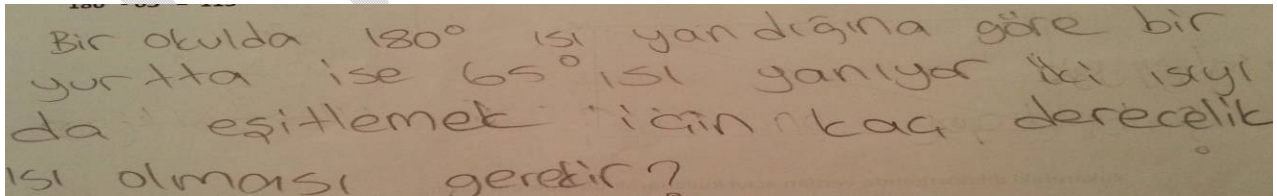 180 - 65 = 115
Bir okulda 180° ısı yandığına göre bir
yurtta ise 65° ısı yanıyor iki ısıyı
da eşitlemek için kaç derecelik
ısı olması gerekir?